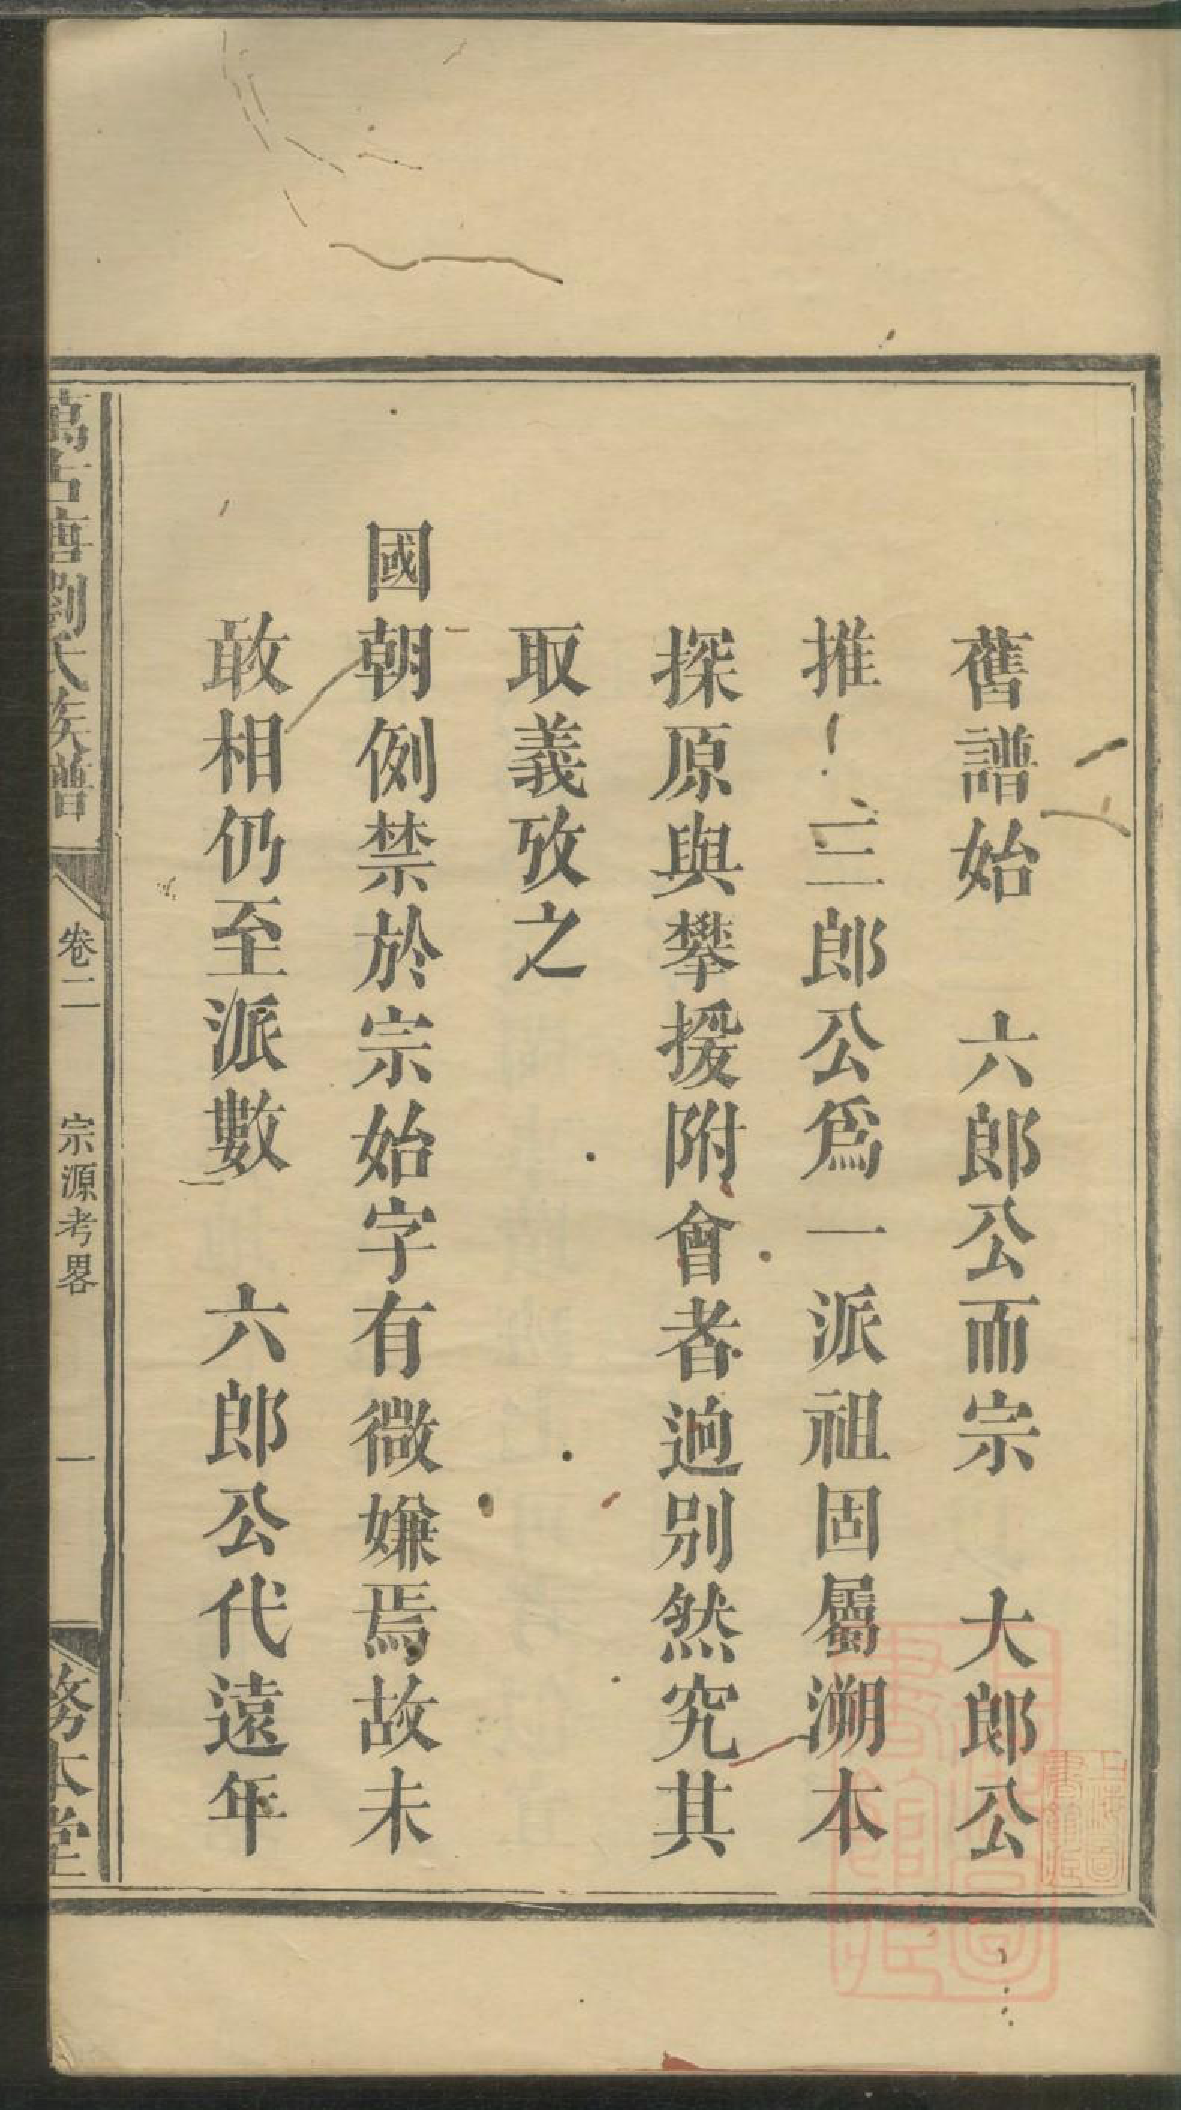 舊譜始　六郎公而宗　大郎公
推　三郎公爲一派祖固屬溯本
探原與攀援附會者逈别然究其
取義攷之
國朝例禁於宗始字有微嫌焉故未
敢相仍至派數　六郎公代遠年
萬古塘劉氏族譜
卷二
宗源考畧
一
務本堂
上海圖書館藏
上海圖書館藏